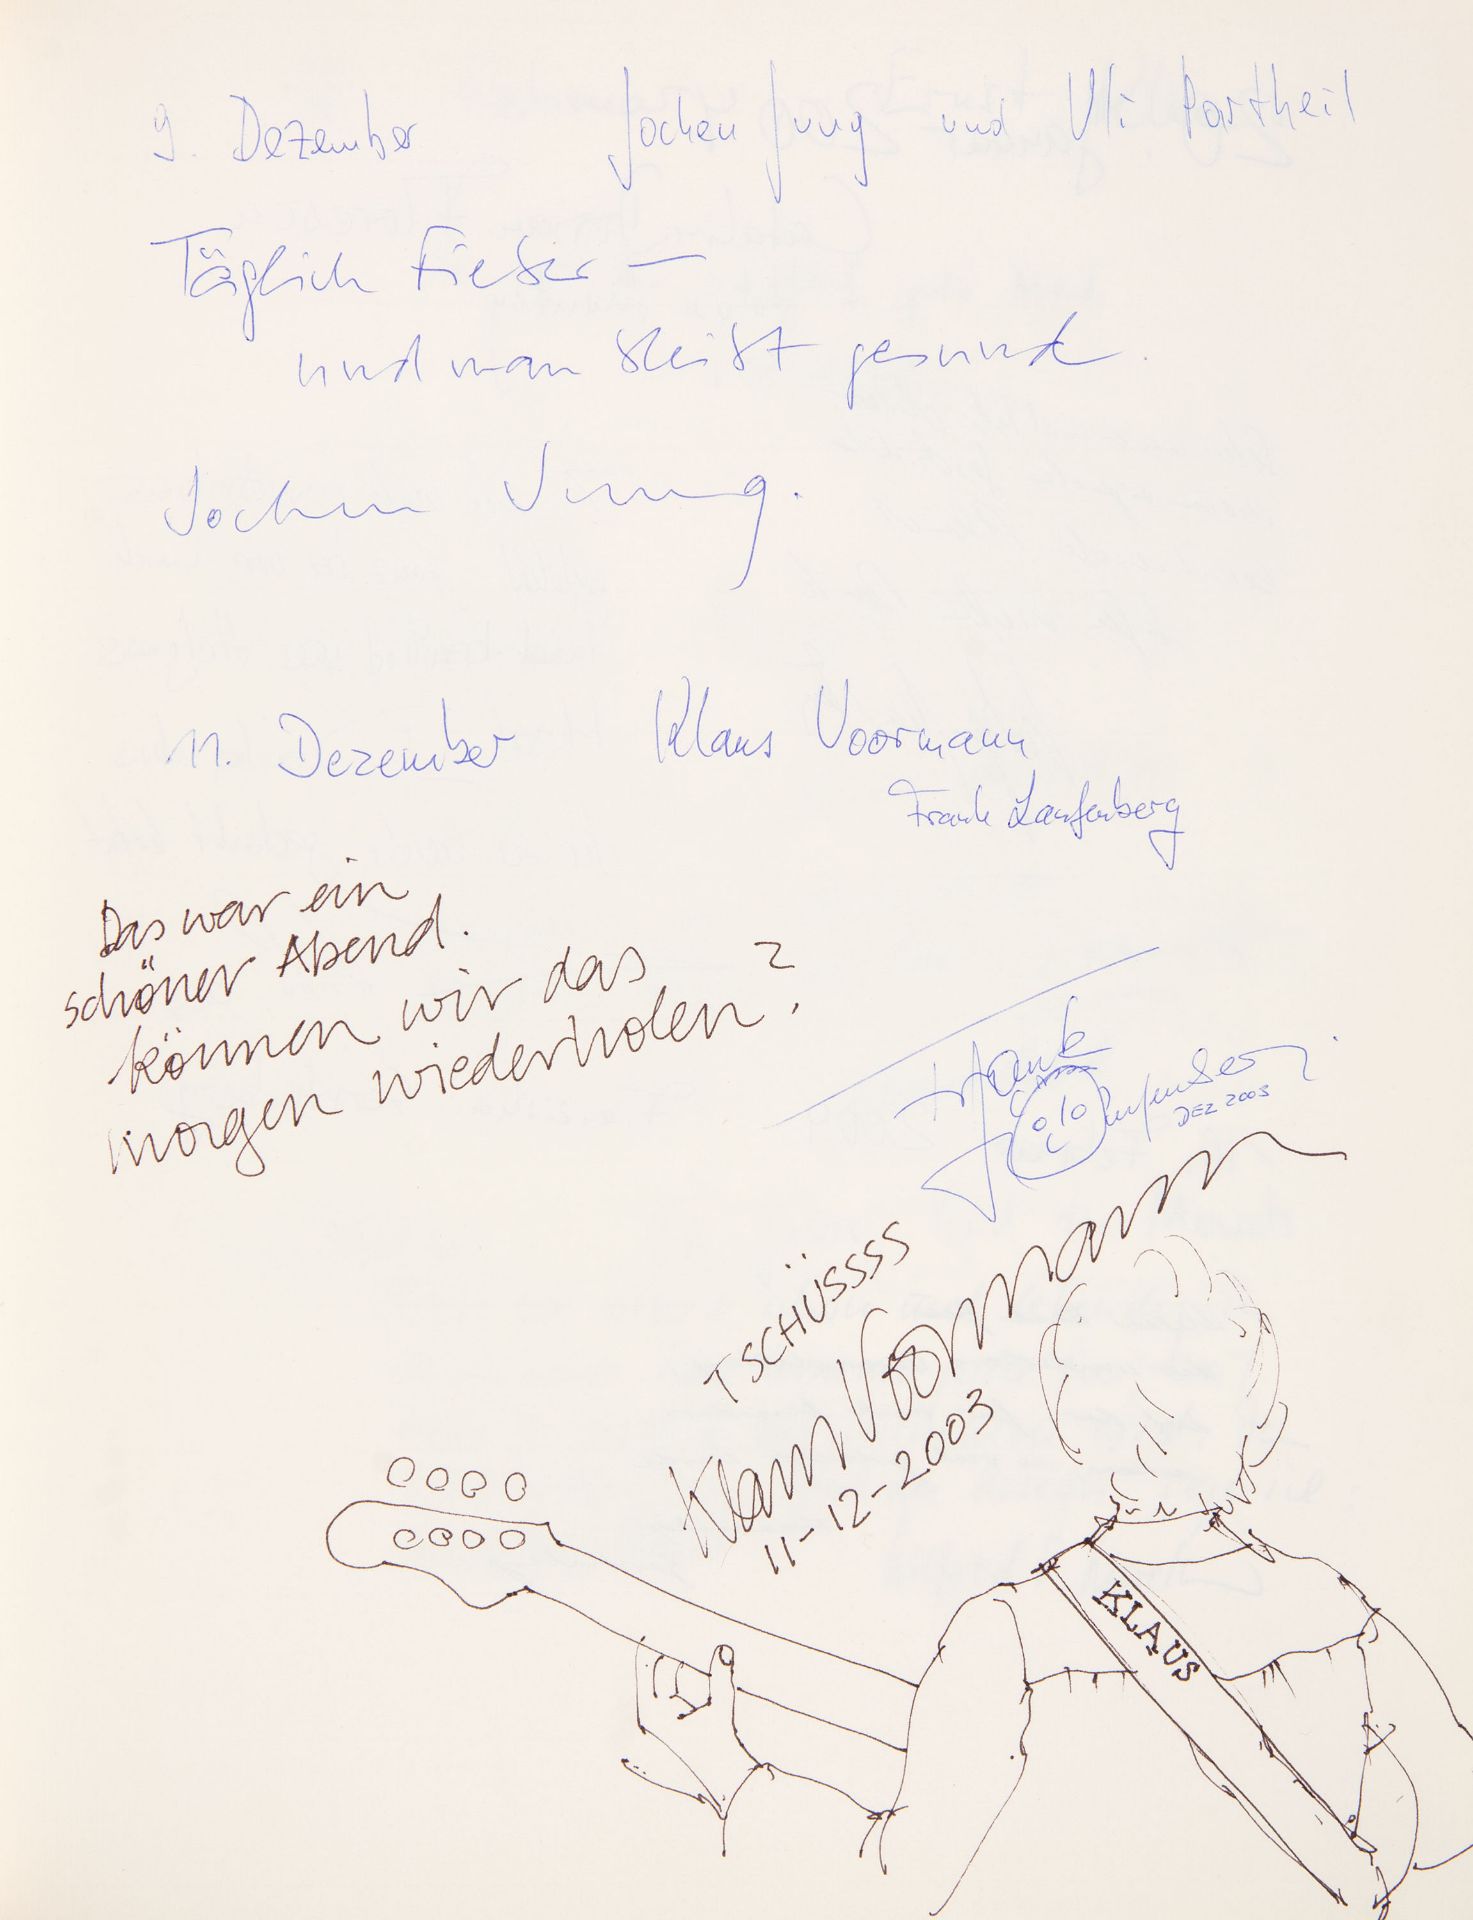 9. Dezember Jochen Jung und Uli Partheil
Täglich Fieber –
und man bleibt gesund.
Jochen Jung.
11. Dezember Klaus Voormann
Frank Laufenberg
Das war ein
schöner Abend.
können wir das
morgen wiederholen?
Frank Laufenberg
DEZ 2003
TSCHÜSSSS
Klaus Voormann
11-12-2003
KLAUS